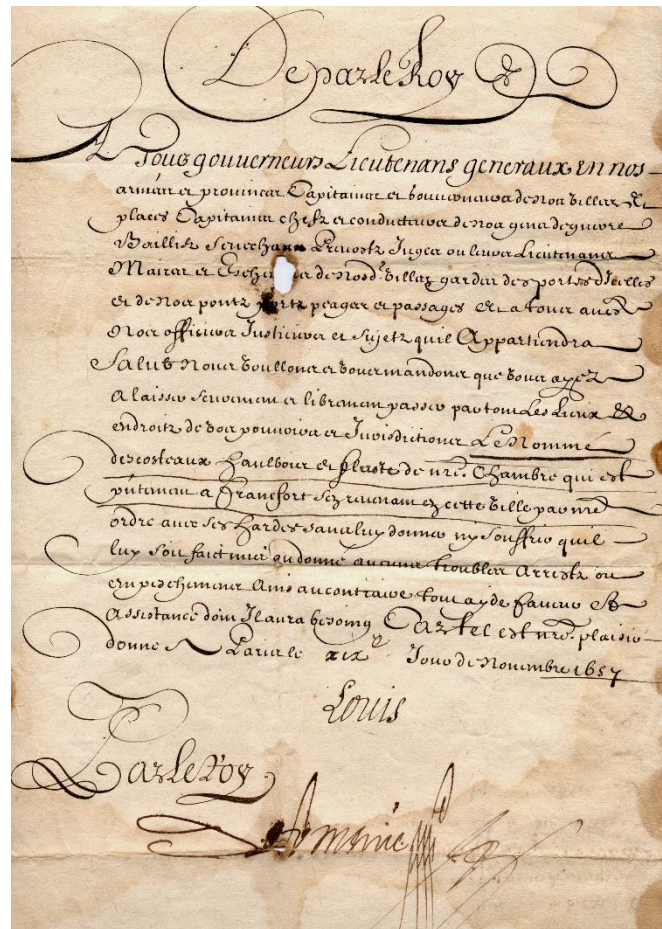 De par le Roy
A Tous gouverneurs Lieutenans generaux en nos
armées et provinces Capitaines et gouverneurs de nos villes et
places Capitaines chefz et conducteurs de nos gens de guerre
Baillifz Prevostz Juges ou leurs Lieutenans
Maires et de nosd. villes gardes des portes d'icelles
et de nos pontz portz peages et passages et a tous aues
Nos officiers Justiciers et sujetz quil Appartiendra
Salut Nous voullons et vous mandons que vous ayez
A laisser seurement et librement passer par tous Les Lieux et
endroitz de voz pouvoirs et Jurisdictions Le Nommé
descosteaux haulbois et fluste de nre. Chambre qui est
pntement a Francfort s'en revenant en cette ville par nre
ordre avec ses hardes sans luy donner ny souffrir quil
luy soit faict mis ou donné aucuns troubles Arrestz ou
empeschemens Ains au contraire tout ayde faveur et
Assistance dont Il aura besoing Car tel est nre. plaisir
donné A Paris le xixe Jour de Novembre 1657
Louis
Par le Roy